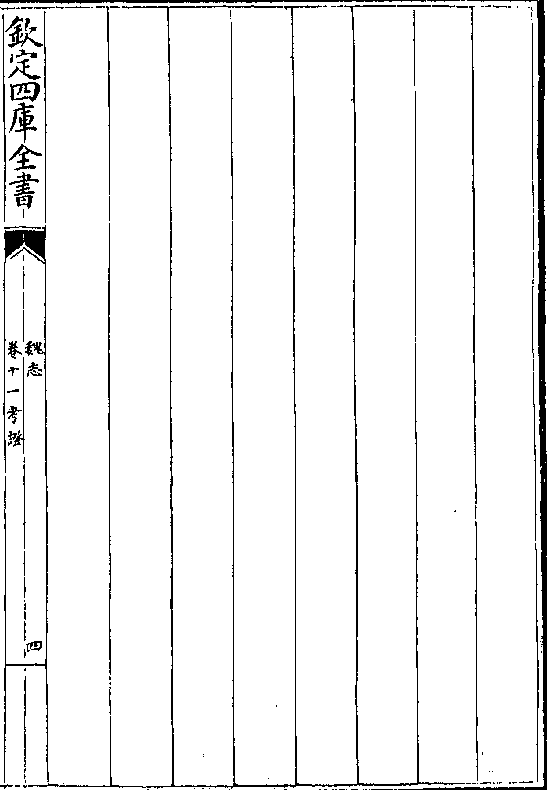 欽定四庫全書
魏志
卷十一考證
四